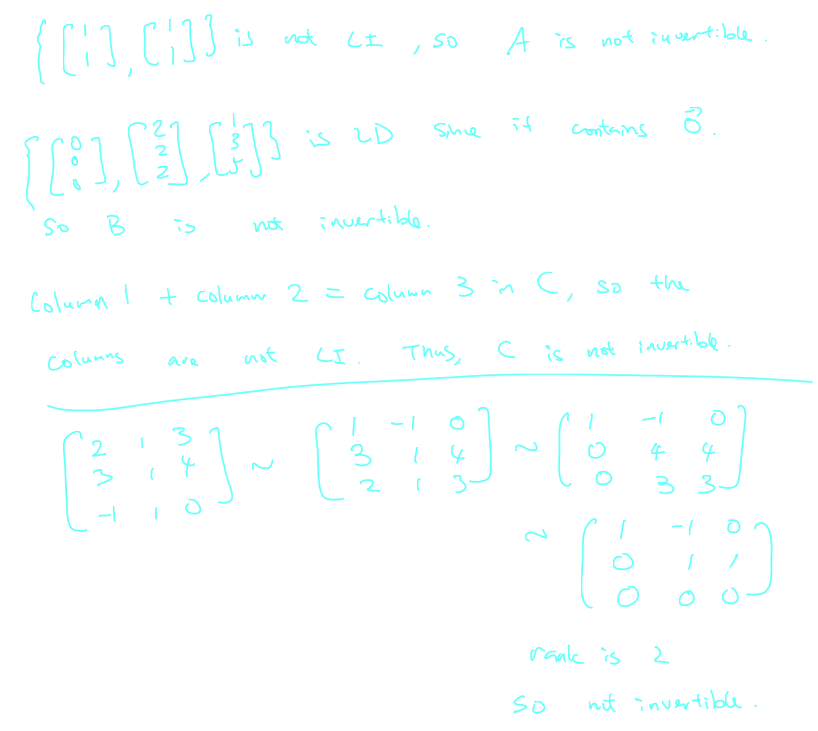 {[1 1], [1 1]} is not LI, so A is not invertible.
{[0 0 0], [2 2 2], [1 3 5]} is LD since it contains 0⃗.
so B is not invertible.
Column 1 + column 2 = column 3 in C, so the
columns are not LI. Thus, C is not invertible.
[2 1 3; 3 1 4; -1 1 0] ~ [1 -1 0; 3 1 4; 2 1 3] ~ [1 -1 0; 0 4 4; 0 3 3]
~ [1 -1 0; 0 1 1; 0 0 0]
rank is 2
so not invertible.